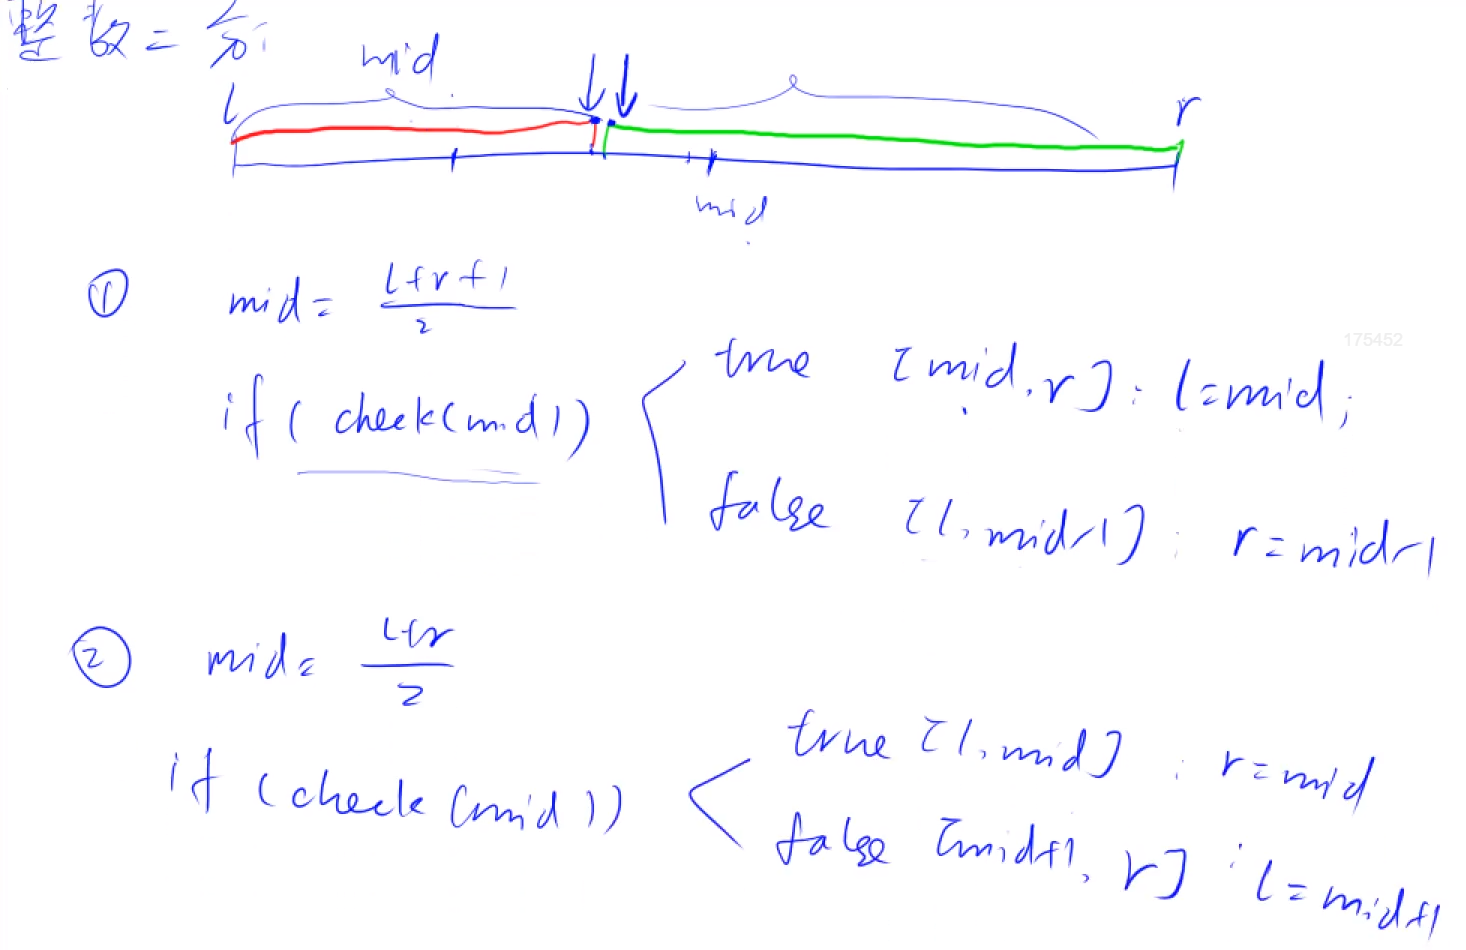 整数二分
mid
l r
mid
① mid = (l+r+1)/2
if ( check(mid)) true [mid, r] : l=mid;
false [l, mid-1] : r=mid-1
② mid = (l+r)/2
if (check(mid)) true [l, mid] : r=mid
false [mid+1, r] : l=mid+1
175452